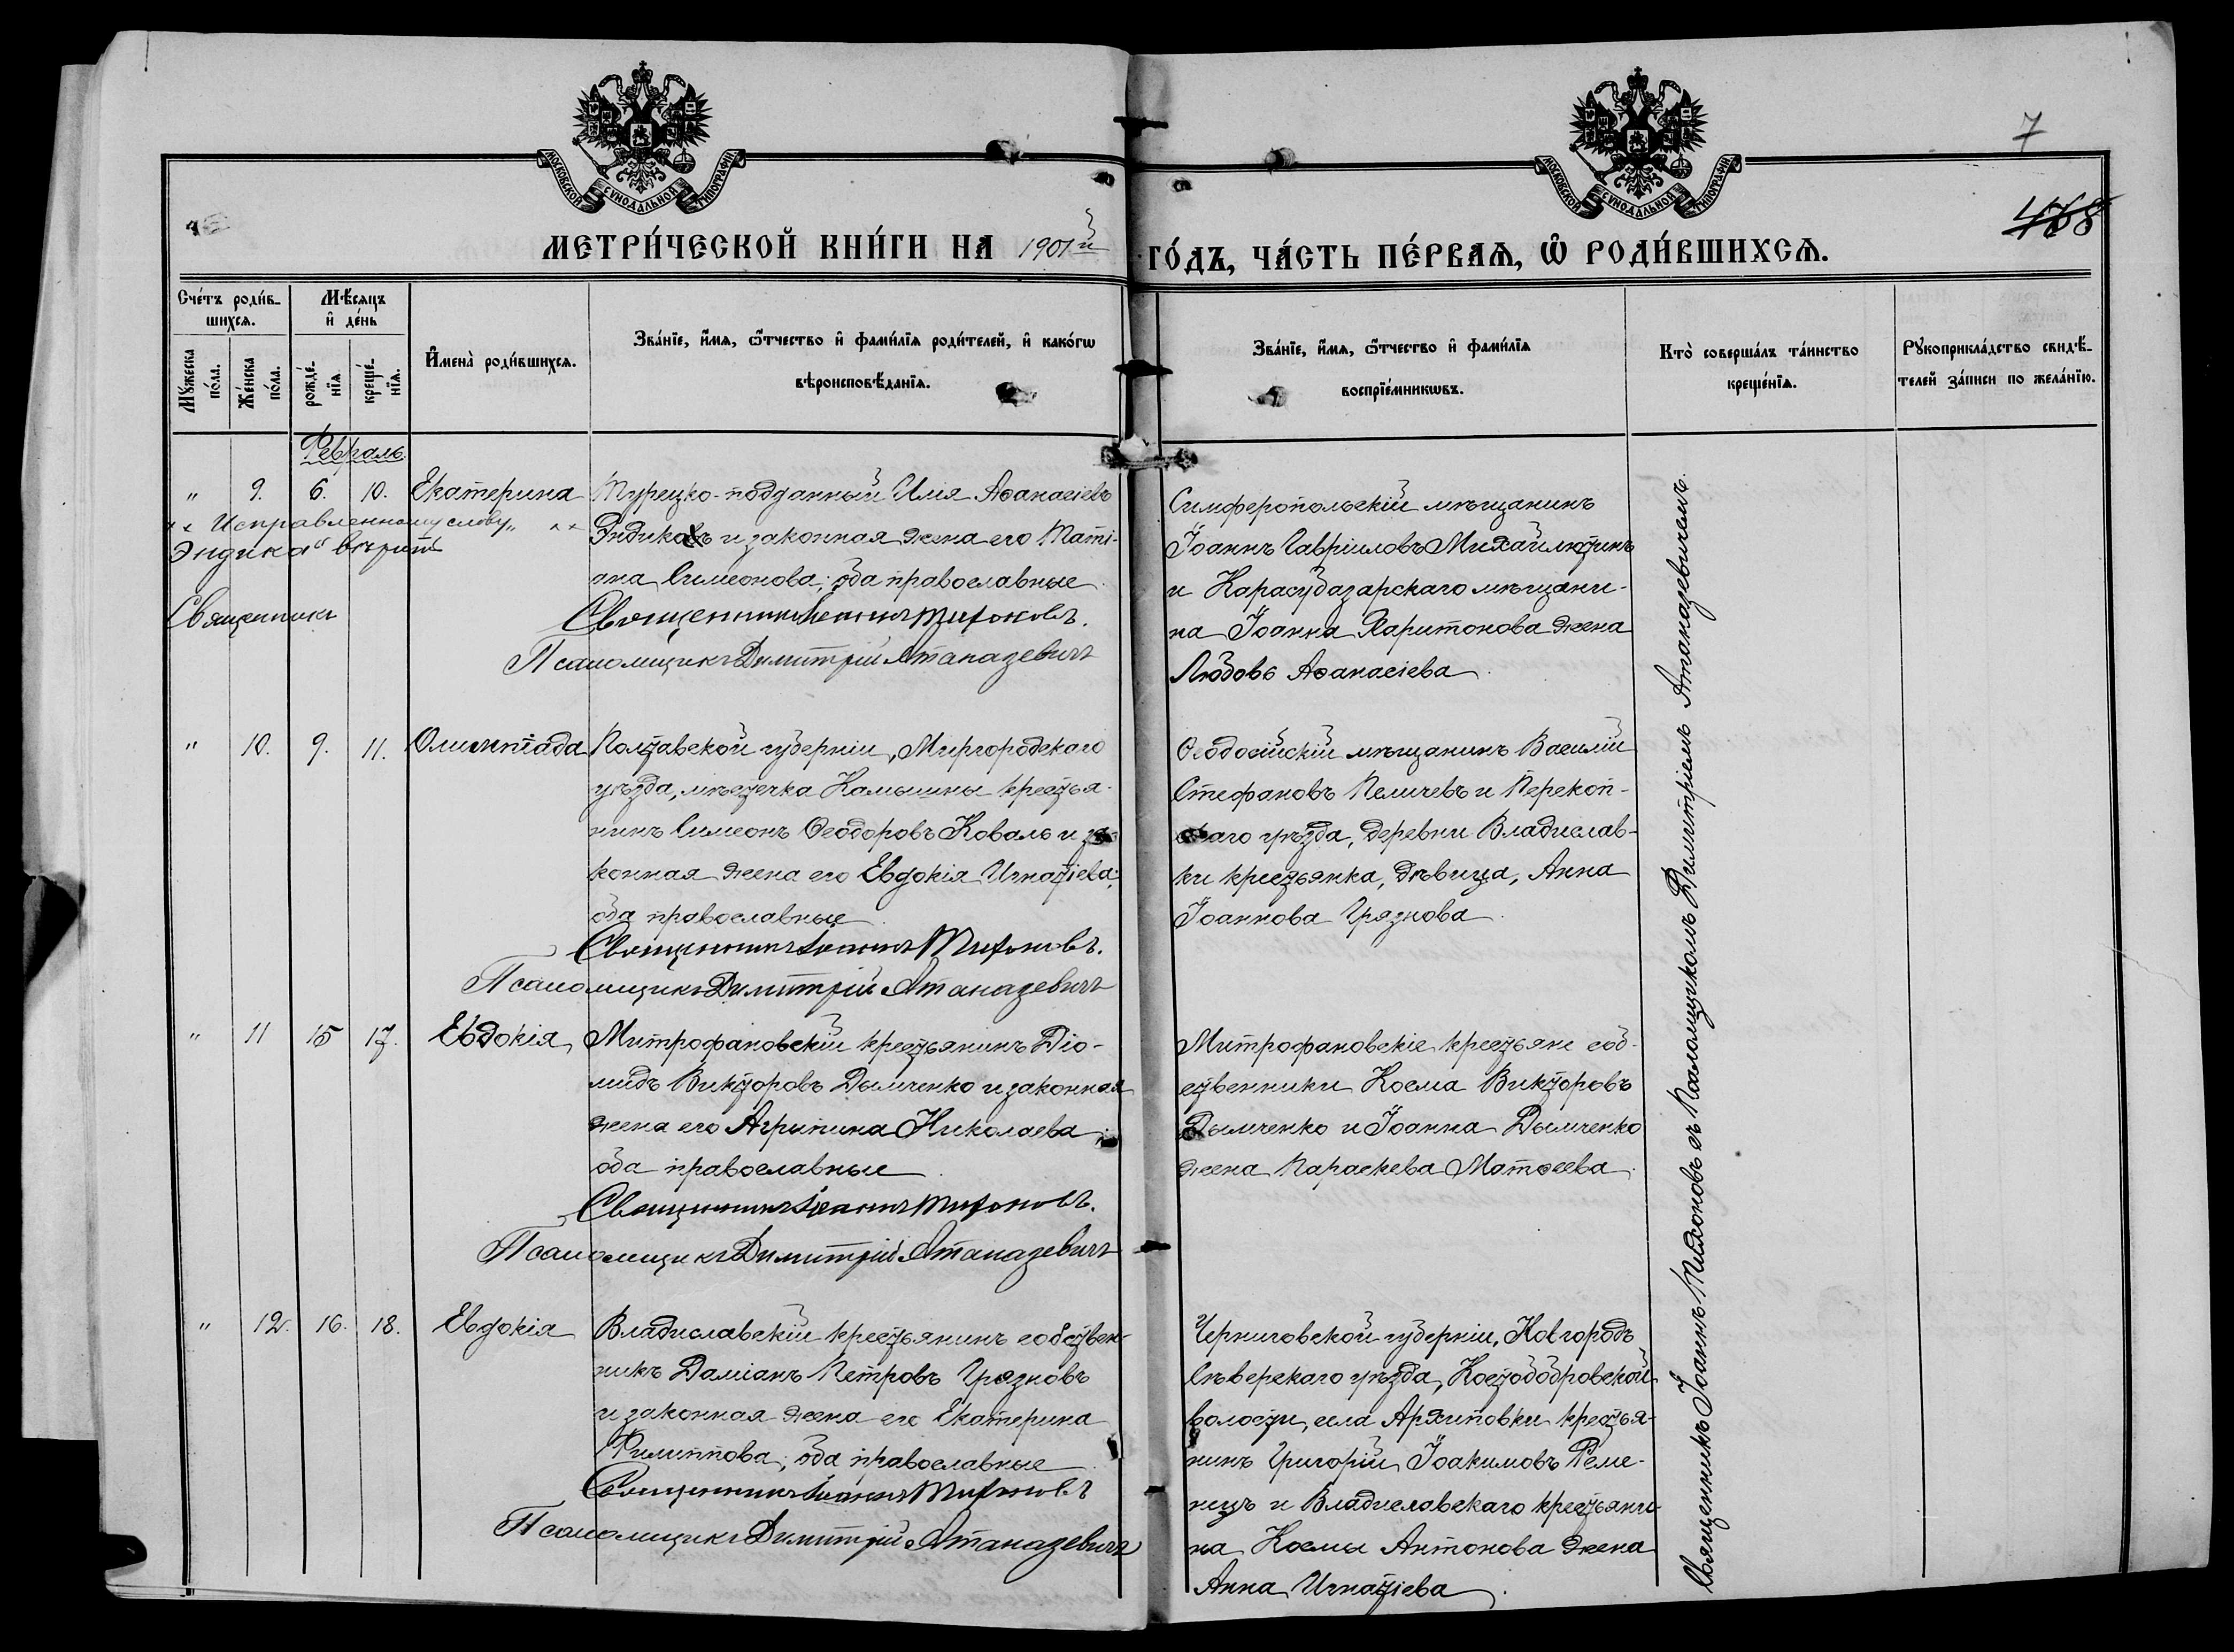 7
468
МОСКОВСКОЙ СѴНОДАЛЬНОЙ ТИПОГРАФІИ
МОСКОВСКОЙ СѴНОДАЛЬНОЙ ТИПОГРАФІИ
МЕТРИ́ЧЕСКОЙ КНИ́ГИ НА 1901й ГО́ДЪ, ЧА́СТЬ ПЕ́РВАѦ, Ѡ РОДИ́ВШИХСѦ.
Сче́тъ роди́в-
шихсѧ.
Мꙋ́жеска по́ла.
Же́нска по́ла.
Мѣ́сѧцъ
и҆ де́нь
рожде́-
нїѧ.
креще́-
нїѧ.
И҆мена̀ роди́вшихсѧ.
Зва́нїе, и҆́мѧ, ѻ҆́тчество и҆ фами́лїѧ роди́телей, и҆ како́гѡ
вѣроисповѣ́данїѧ.
Зва́нїе, и҆́мѧ, ѻ҆́тчество и҆ фами́лїѧ
воспрїе́мникѡвъ.
Кто̀ соверша́лъ та́инство
креще́нїѧ.
Рꙋкоприкла́дство свидѣ́-
телей за́писи по жела́нїю.
Февраль.
" 9. 6. 10. Екатерина
Турецко-подданный Илія Аѳанасіевъ
Эндика и законная жена его Маті-
ана Симеонова; оба православные.
Священникъ Іоаннъ Тихоновъ.
Псаломщикъ Димитрій Атаназевичъ
×× Исправленному слову „ ××
Эндика" вѣрить
Священникъ
Симферопольскій мѣщанинъ
Іоаннъ Гавріиловъ Михайлютинъ
и Карасубазарскаго мѣщани-
на Іоанна Харитонова жена
Любовь Аѳанасіева.
" 10. 9. 11. Олимпіада
Полтавской губерніи, Миргородскаго
уѣзда, мѣстечка Камышны крестья-
нинъ Симеонъ Ѳеодоровъ Коваль и за-
конная жена его Евдокія Игнатіева;
оба православные.
Священникъ Іоаннъ Тихоновъ.
Псаломщикъ Димитрій Атаназевичъ
Ѳеодосійскій мѣщанинъ Василій
Стефановъ Пеличевъ и Перекоп-
скаго уѣзда, деревни Владислав-
ки крестьянка, дѣвица, Анна
Іоаннова Грязнова.
" 11 15 17. Евдокія
Митрофановскій крестьянинъ Діо-
мидъ Викторовъ Дымченко и законная
жена его Агрипина Николаева;
оба православные.
Священникъ Іоаннъ Тихоновъ.
Псаломщикъ Димитрій Атаназевичъ
Митрофановскіе крестьяне соб-
ственники Косма Викторовъ
Дымченко и Іоанна Дымченко
жена Параскева Матѳеева.
" 12. 16. 18. Евдокія
Владиславскій крестьянинъ собствен-
никъ Даміанъ Петровъ Грязновъ
и законная жена его Екатерина
Филиппова; оба православные.
Священникъ Іоаннъ Тихоновъ
Псаломщикъ Димитрій Атаназевичъ
Черниговской губерніи, Новгородъ
Сѣверскаго уѣзда, Костобобровской
волости, села Архиповки крестья-
нинъ Григорій Іоакимовъ Реме-
нецъ и Владиславскаго крестьяни-
на Космы Антонова жена
Анна Игнатіева.
Священникъ Іоаннъ Тихоновъ съ Псаломщикомъ Димитріемъ Атаназевичемъ.